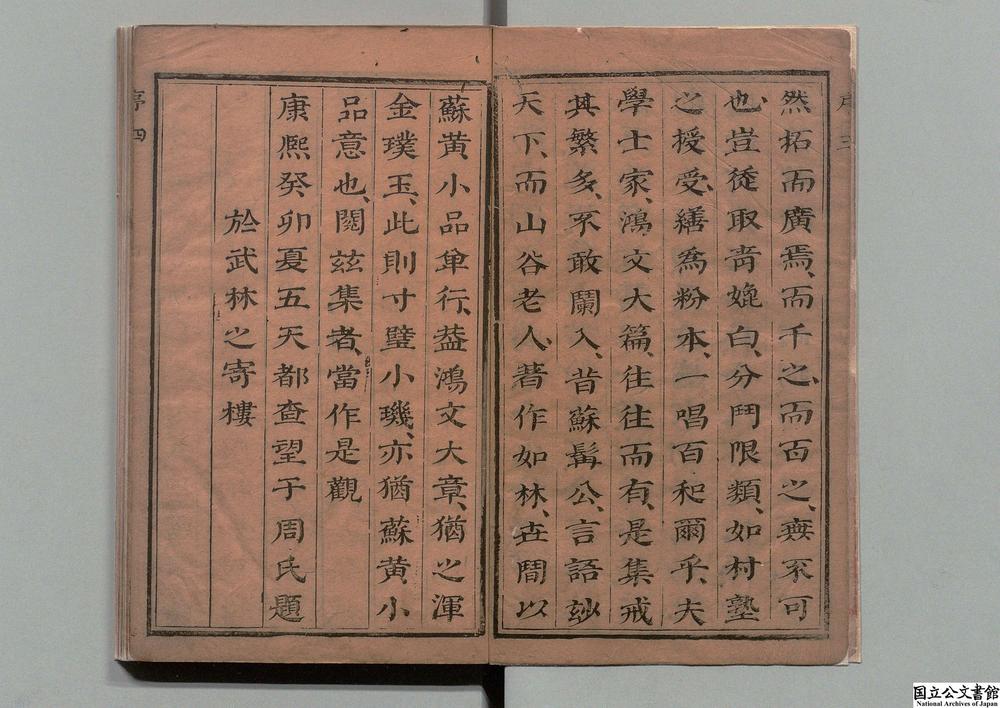 然拓而廣焉、而千之、而百之、無不可
也、豈從取靑媲白、分門限類、如村塾
之授受、繕為粉本、一唱百和爾乎、夫
學士家、鴻文大篇、往往而有、是集、戒
其繁多、不敢闌入、昔蘇髯公、言語玅
天下、而山谷老人、著作如林、世間以
蘇黃小品單行、葢鴻文大章、猶之渾
金璞玉、此則寸璧小璣、亦猶蘇黃小
品意也、閱兹集者、當作是觀
康熙癸卯夏五天都查望于周氏題
於武林之寄樓
序四
国立公文書館
National Archives of Japan